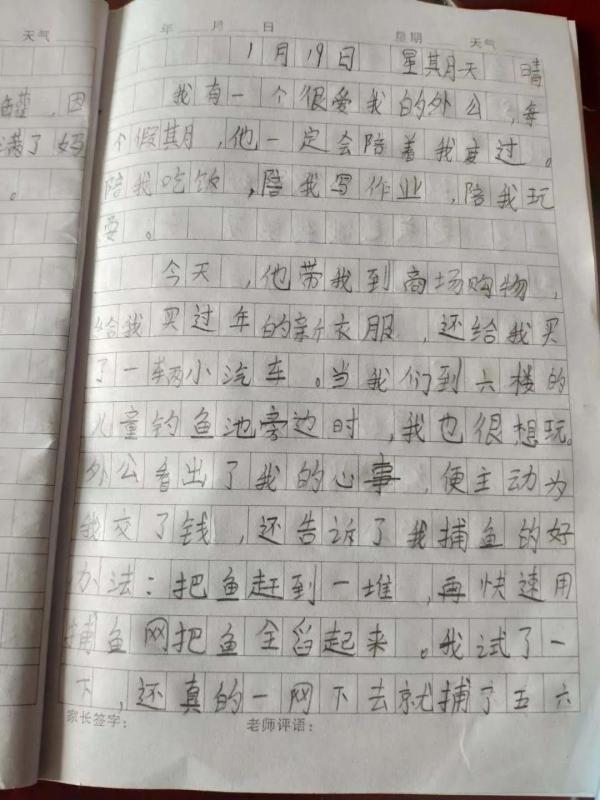 天气
年 月 日 星期 天气
1月19日 星期天 晴
我有一个很爱我的外公,每
因
个假期,他一定会陪着我度过。
满了妈
陪我吃饭,陪我写作业,陪我玩
。
耍。
今天,他带我到商场购物,
给我买过年的新衣服,还给我买
了一辆小汽车。当我们到六楼的
儿童钓鱼池旁边时,我也很想玩。
外公看出了我的心事,便主动为
我交了钱,还告诉了我捕鱼的好
办法:把鱼赶到一堆,再快速用
捕鱼网把鱼全舀起来。我试了一
下,还真的一网下去就捕了五六
家长签字: 老师评语: